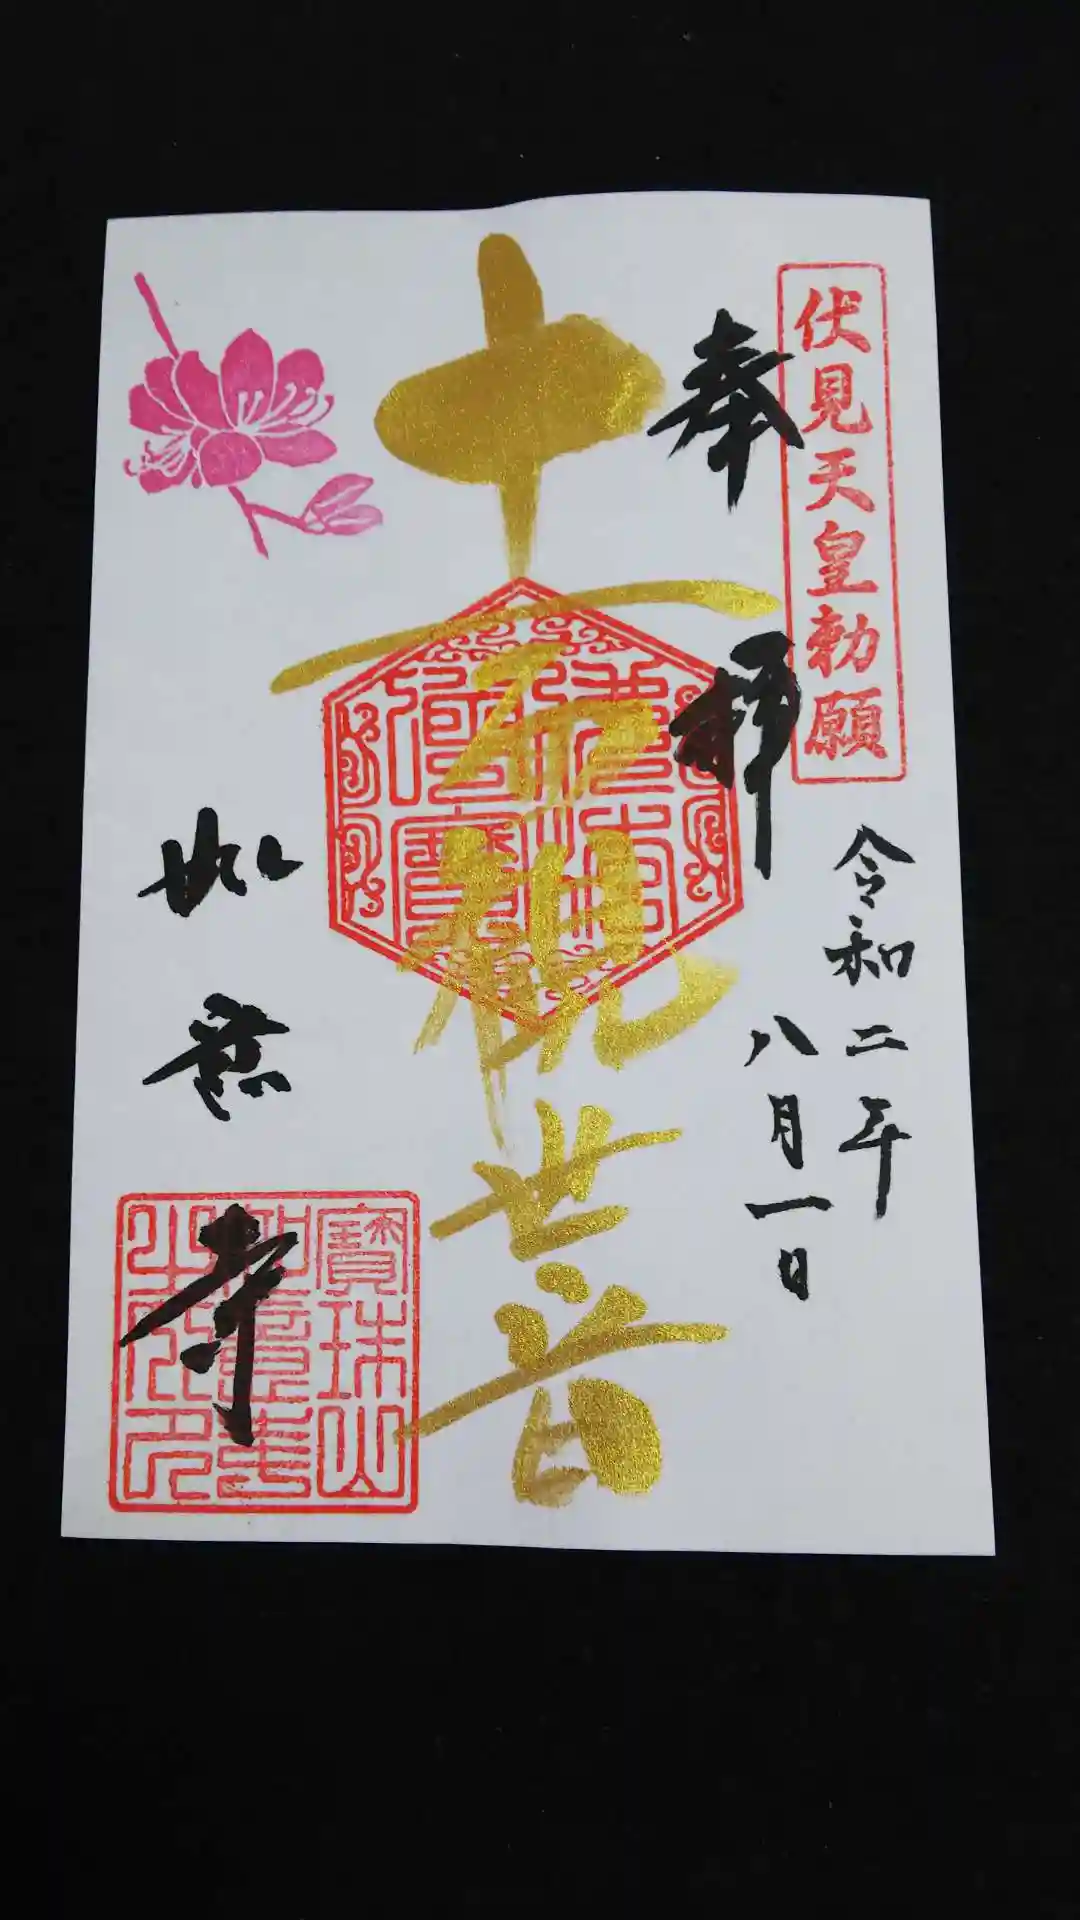 伏見天皇勅願
奉拝
令和二年
八月一日
十一面観世音
如意寺
寶珠山
如意寺